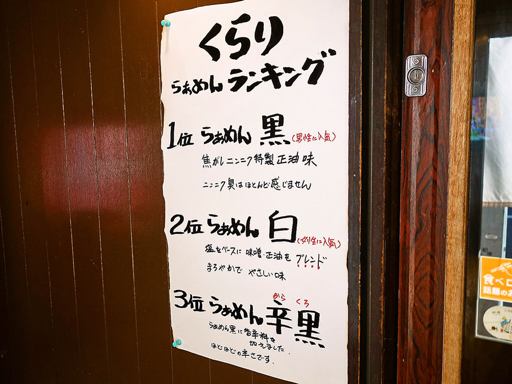 くらり
らぁめんランキング
1位 らぁめん 黒 (男性に人気)
焦がしニンニク特製正油味
ニンニク臭はほとんど感じません
2位 らぁめん 白 (女性に人気)
塩をベースに味噌、正油をブレンド
まろやかでやさしい味
3位 らぁめん 辛黒
から くろ
らぁめん黒に旨辛料を
加えました
ほどほどの辛さです。
食べロ